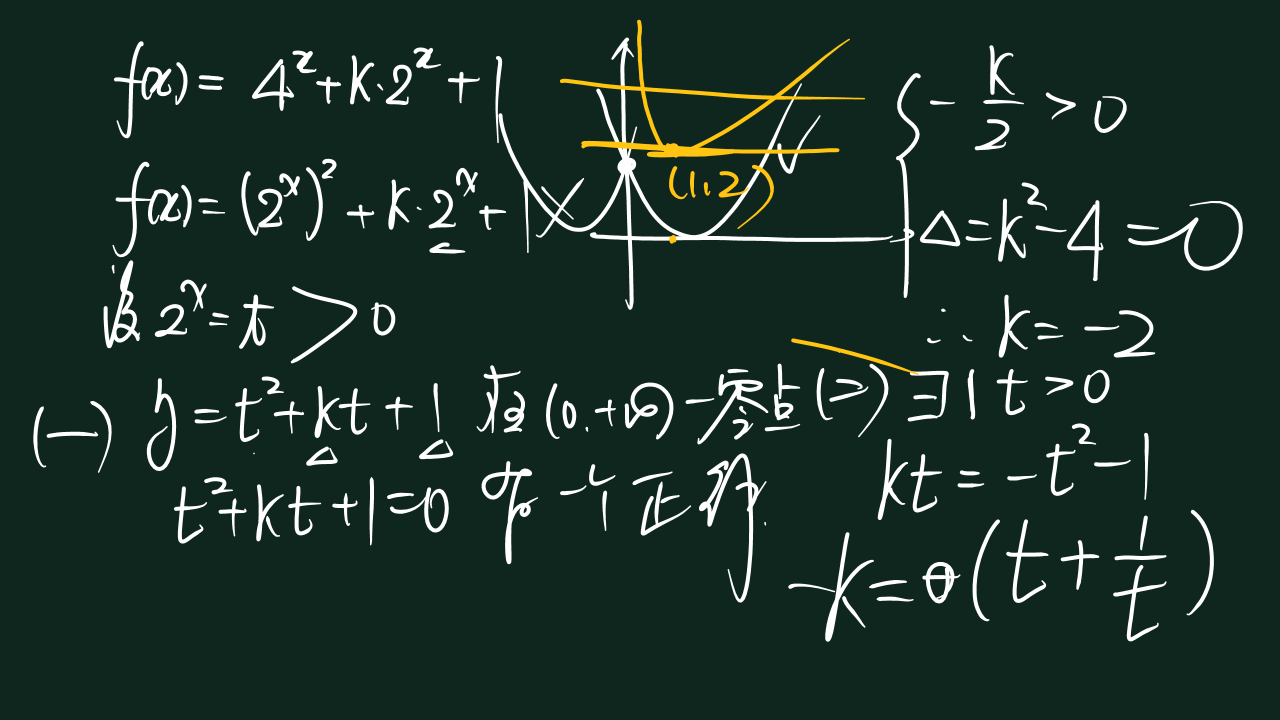 f(x) = 4^x + k·2^x + 1
f(x) = (2^x)^2 + k·2^x + 1
设 2^x = t > 0
(一) y = t^2 + kt + 1 在 (0.+∞) 一零点
t^2 + kt + 1 = 0 一个正
(1,2)
{ - k/2 > 0
Δ = k^2 - 4 = 0
∴ k = -2
(二) ∃ 1 t > 0
kt = -t^2 - 1
-k = (t + 1/t)